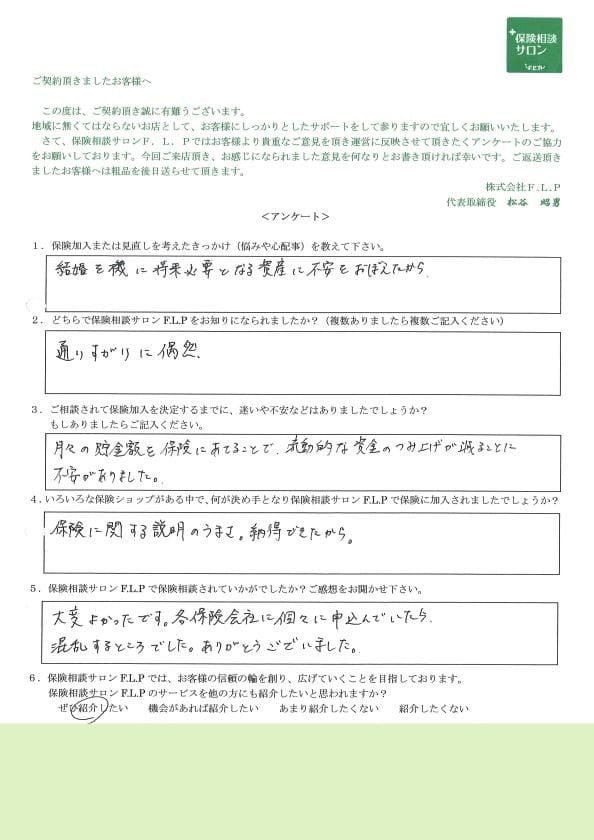 +保険相談
サロン
ご契約頂きましたお客様へ
この度は、ご契約頂き誠に有難うございます。
地域に無くてはならないお店として、お客様にしっかりとしたサポートをして参りますので宜しくお願いいたします。
さて、保険相談サロンF．L．Pではお客様より貴重なご意見を頂き運営に反映させて頂きたくアンケートのご協力
をお願いしております。今回ご来店頂き、お感じになられました意見を何なりとお書き頂ければ幸いです。ご返送頂き
ましたお客様へは粗品を後日送らせて頂きます。
株式会社F.L.P
代表取締役　松谷　昭男
＜アンケート＞
1．保険加入または見直しを考えたきっかけ（悩みや心配事）を教えて下さい。
結婚を機に将来必要となる資産に不安をおぼえたから.
2．どちらで保険相談サロンF.L.Pをお知りになられましたか？（複数ありましたら複数ご記入ください）
通りすがりに偶然.
3．ご相談されて保険加入を決定するまでに、迷いや不安などはありましたでしょうか？
もしありましたらご記入ください。
月々の貯金額を保険にあてることで、流動的な資金のつみ上げが減ることに
不安がありました。
4．いろいろな保険ショップがある中で、何が決め手となり保険相談サロンF.L.Pで保険に加入されましたでしょうか？
保険に関する説明のうまさ。納得できたから。
5．保険相談サロンF.L.Pで保険相談されていかがでしたか？ご感想をお聞かせ下さい。
大変よかったです。各保険会社に個々に申込んでいたら
混乱するところでした。ありがとうございました。
6．保険相談サロンF.L.Pでは、お客様の信頼の輪を創り、広げていくことを目指しております。
保険相談サロンF.L.Pのサービスを他の方にも紹介したいと思われますか？
ぜひ紹介したい　機会があれば紹介したい　あまり紹介したくない　紹介したくない